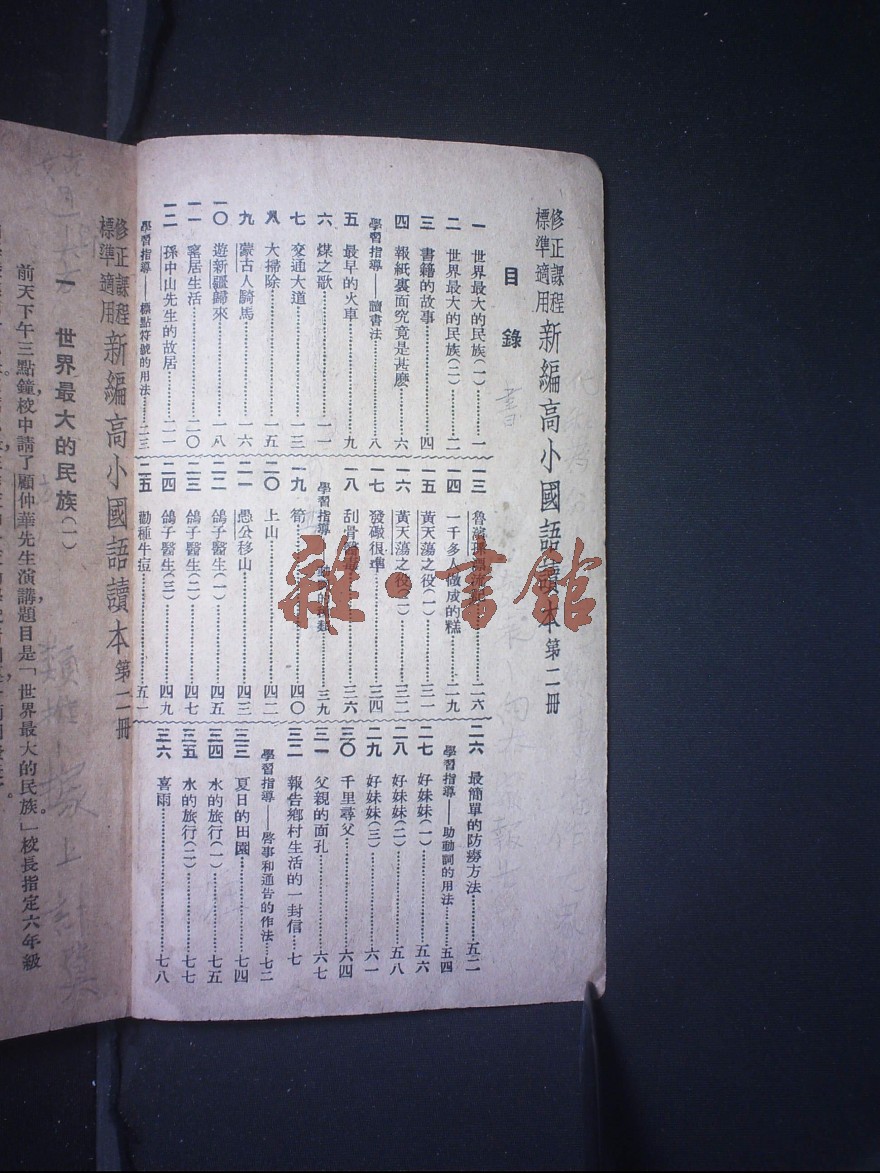 修正課程標準適用 新編高小國語讀本 第二冊
目錄
一 世界最大的民族(一)……一
二 世界最大的民族(二)……二
三 書籍的故事……四
四 報紙裏面究竟是甚麼……六
學習指導——讀書法……八
五 最早的火車……九
六 煤之歌……一一
七 交通大道……一三
八 大掃除……一五
九 蒙古人騎馬……一六
一〇 遊新疆歸來……一八
一一 窰居生活……二〇
一二 孫中山先生的故居……二一
學習指導——標點符號的用法……二三
一三 魯濱孫……二六
一四 一千多人做成的糕……二九
一五 黃天蕩之役(一)……三一
一六 黃天蕩之役(二)……三二
一七 發礮很準……三四
一八 刮骨……三六
學習指導……三九
一九 筍……四〇
二〇 上山……四二
二一 愚公移山……四三
二二 鴿子醫生(一)……四五
二三 鴿子醫生(二)……四七
二四 鴿子醫生(三)……四九
二五 勸種牛痘……五一
二六 最簡單的防癆方法……五二
學習指導——助動詞的用法……五四
二七 好妹妹(一)……五六
二八 好妹妹(二)……五八
二九 好妹妹(三)……六一
三〇 千里尋父……六四
三一 父親的面孔……六七
三二 報告鄉村生活的一封信……七
學習指導——啓事和通告的作法……七二
三三 夏日的田園……七四
三四 水的旅行(一)……七五
三五 水的旅行(二)……七七
三六 喜雨……七八
雜·書館
修正課程標準適用 新編高小國語讀本 第二冊
一 世界最大的民族(一)
前天下午三點鐘,校中請了顧仲華先生演講,題目是「世界最大的民族」。校長指定六年級